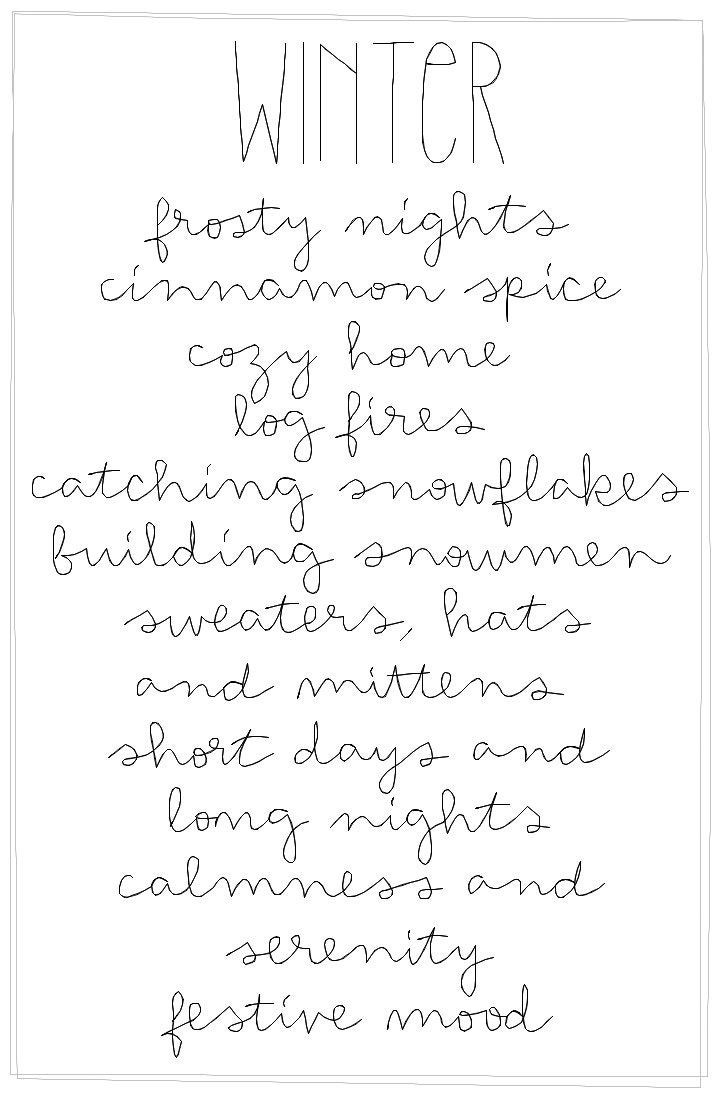 WINTER
frosty nights
cinnamon spice
cozy home
log fires
catching snowflakes
building snowmen
sweaters, hats
and mittens
short days and
long nights
calmness and
serenity
festive mood